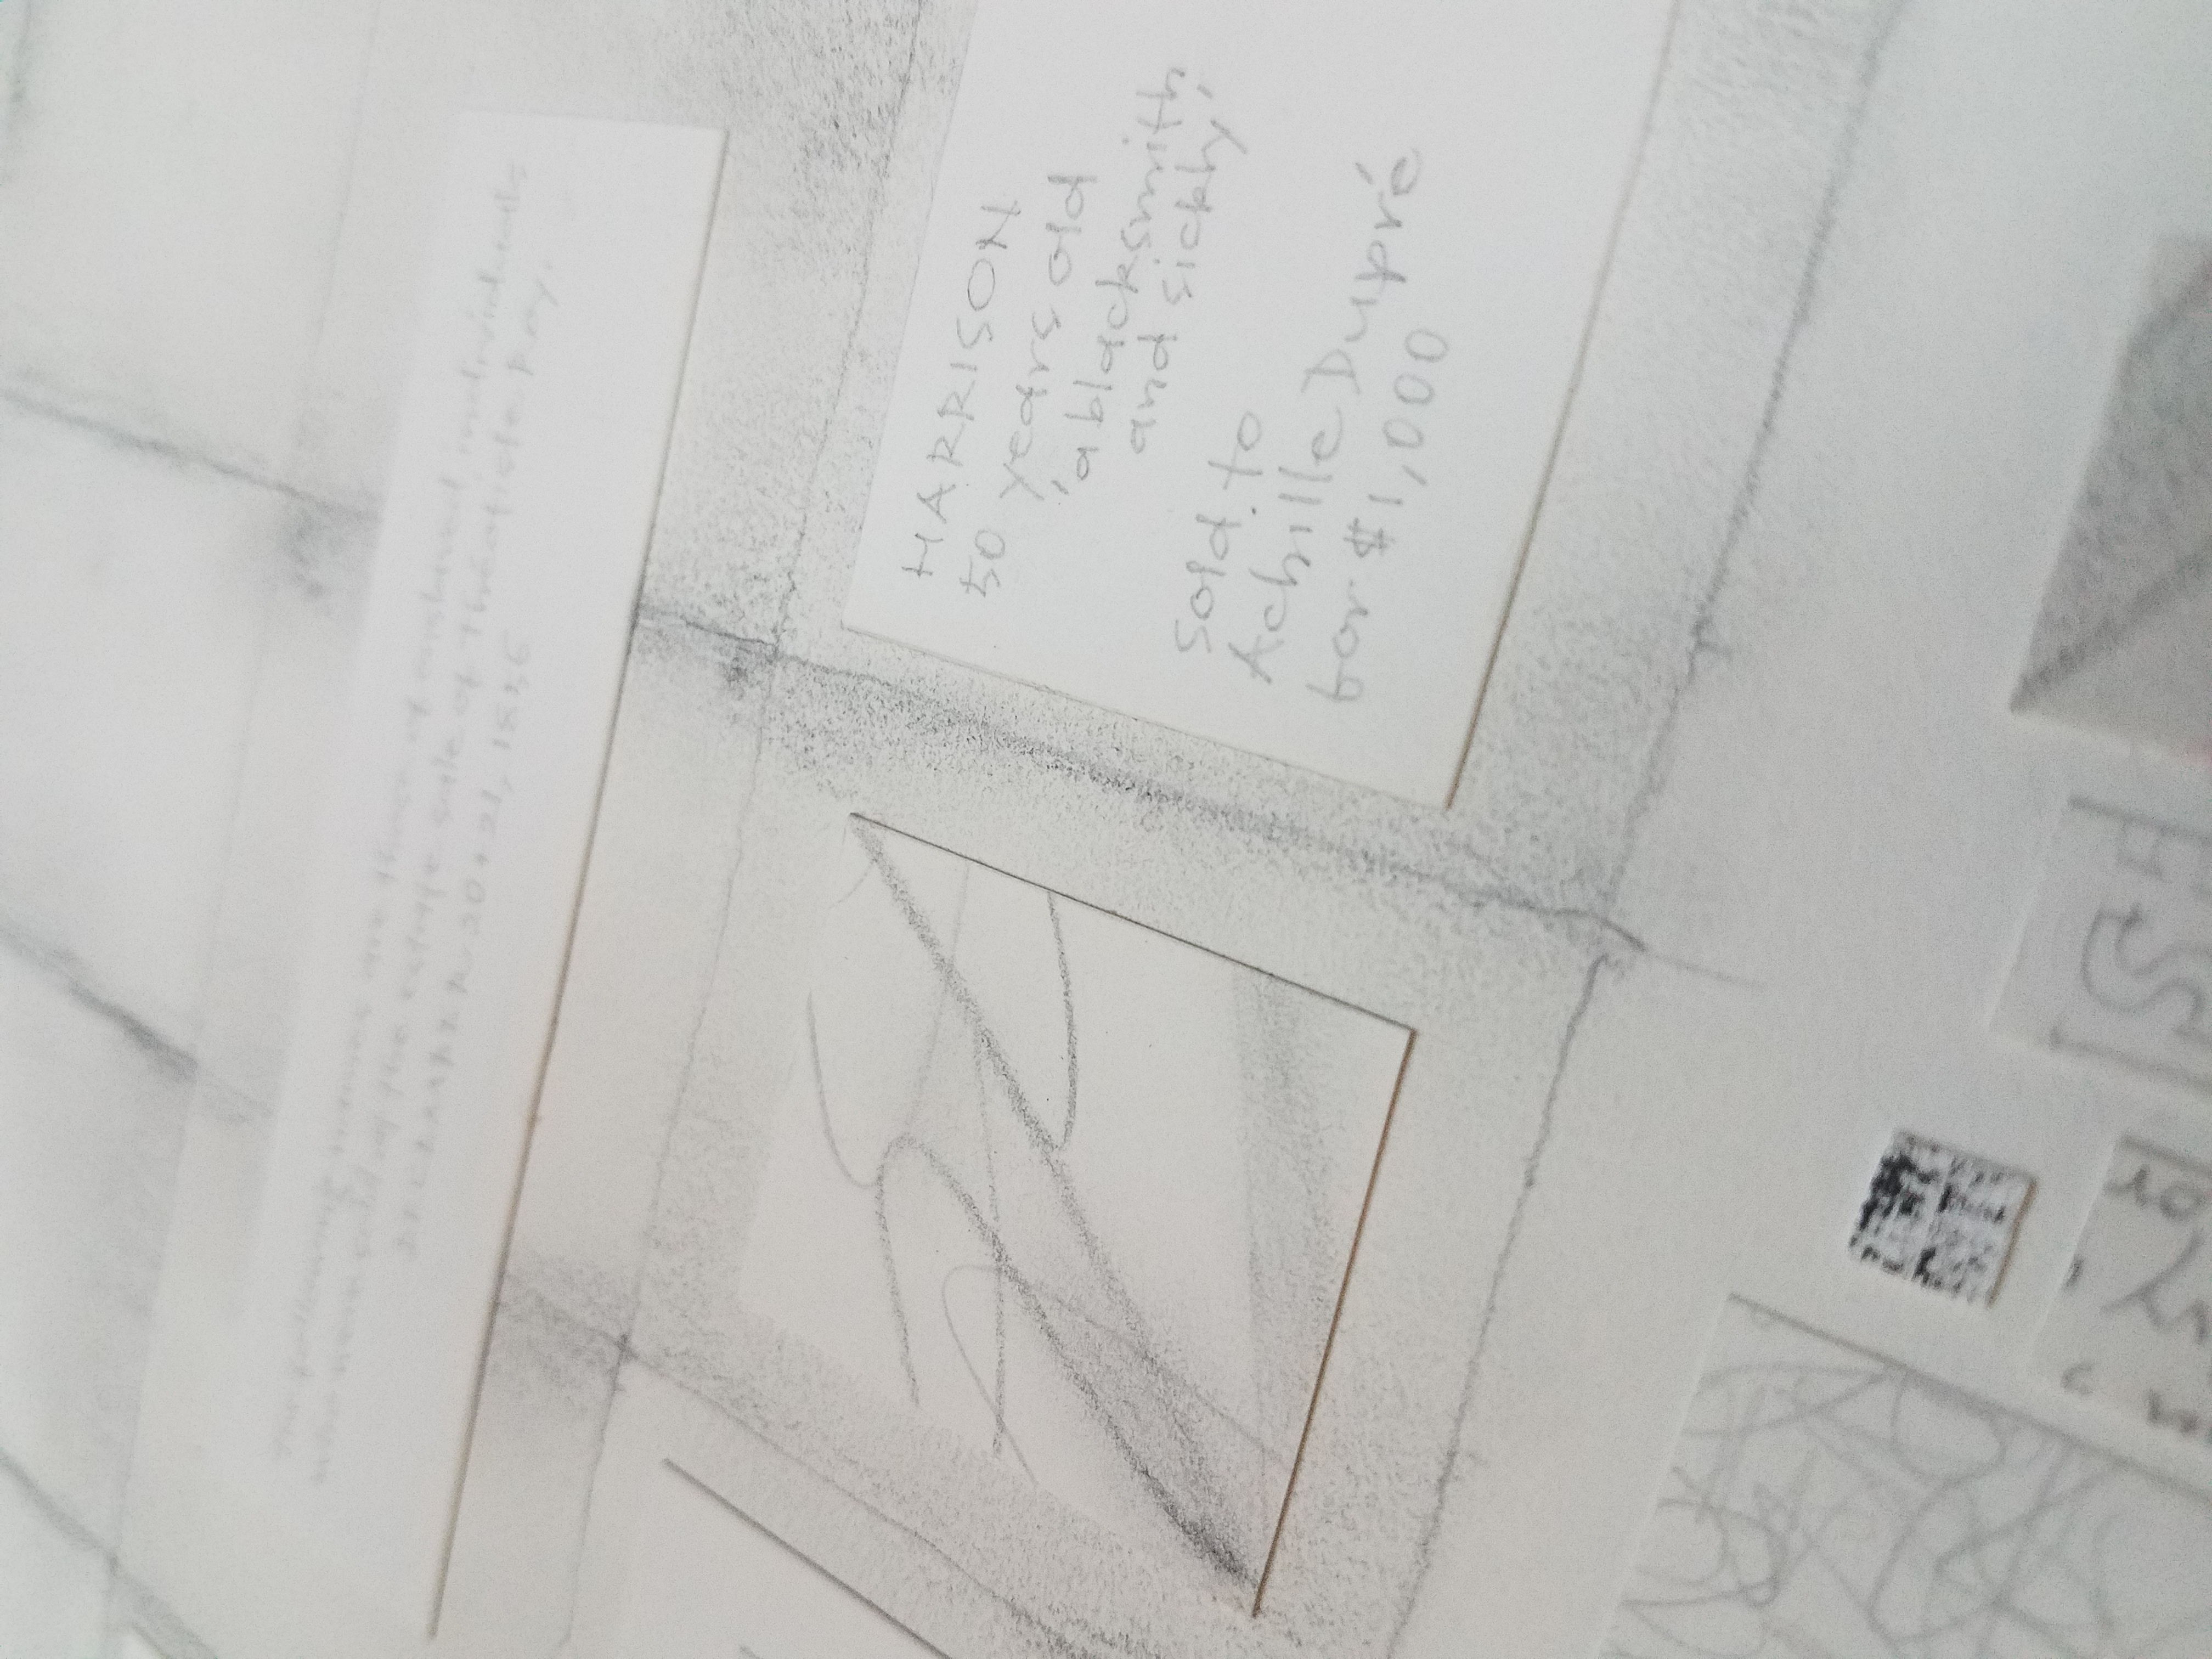 The following names are those of enslaved individuals
who were sold at the estate sale of Théotiste Roy,
DECEMBER 20 + 21, 1836
HARRISON
50 years old
'a blacksmith
and sickly'
sold to
Achille Dupré
for $1,000